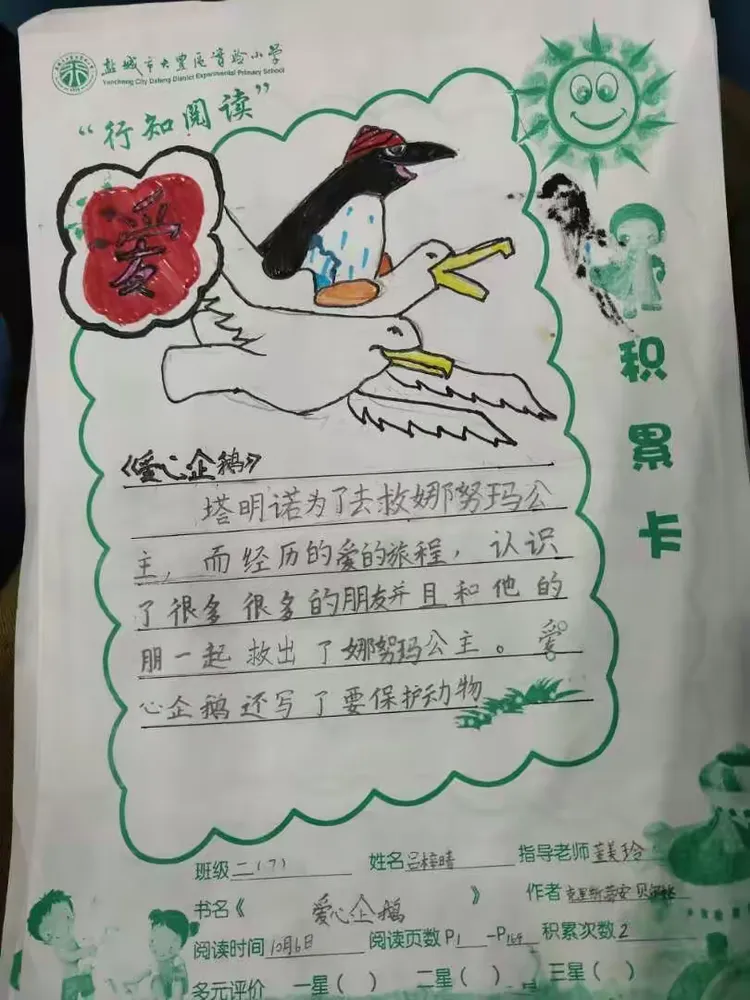 盐城市大丰区实验小学
Yancheng City Dafeng District Experimental Primary School
“行知阅读”
爱
积累卡
《爱心企鹅》
塔明诺为了去救娜努玛公
主，而经历的爱的旅程，认识
了很多很多的朋友并且和他的
朋一起救出了娜努玛公主。爱
心企鹅还写了要保护动物
班级二(7) 姓名吕梓晴 指导老师董美玲
书名《爱心企鹅》 作者克里斯蒂安
阅读时间10月6日 阅读页数P1-P164 积累次数2
多元评价 一星( ) 二星( ) 三星( )